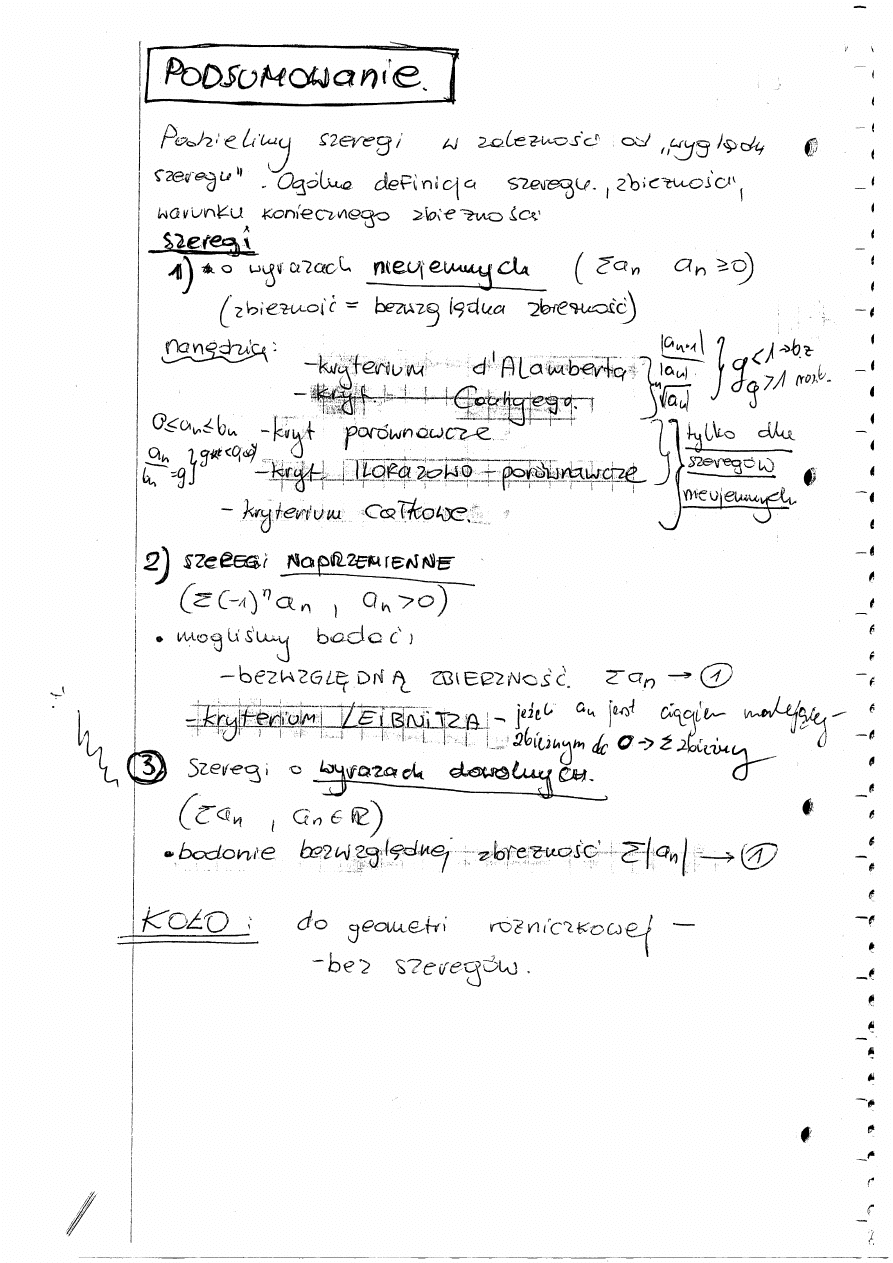 PODSUMOWANIE.
Podzielimy szeregi w zależności od „wyglądu
szeregu". Ogólna definicja szeregu, zbieżności,
warunku koniecznego zbieżności
szeregi
1) o wyrazach nieujemnych (Σan an ≥ 0)
(zbieżność = bezwzględna zbieżność)
narzędzia:
- kryterium d'Alamberta |an+1| / |an|
- kryt. Cauchy'ego. ⁿ√an } g<1 → bz g>1 rozb.
0≤an≤bn - kryt porównawcze
an/bn = g - kryt ILORAZOWO - porównawcze
} tylko dla
szeregów
nieujemnych
- kryterium całkowe.
2) SZEREGI NAPRZEMIENNE
(Σ(-1)ⁿ an , an > 0)
• mogliśmy badać:
- BEZWZGLĘDNĄ ZBIERZNOŚĆ. Σan → ①
- kryterium LEIBNITZA - jeżeli an jest ciągiem malejącym
zbieżnym do 0 → Σ zbieżny
③ Szeregi o wyrazach dowolnych.
(Σan , an ∈ ℝ)
• badanie bezwzględnej zbieżność Σ|an| → ①
KOŁO: do geometri różniczkowej -
- bez szeregów.